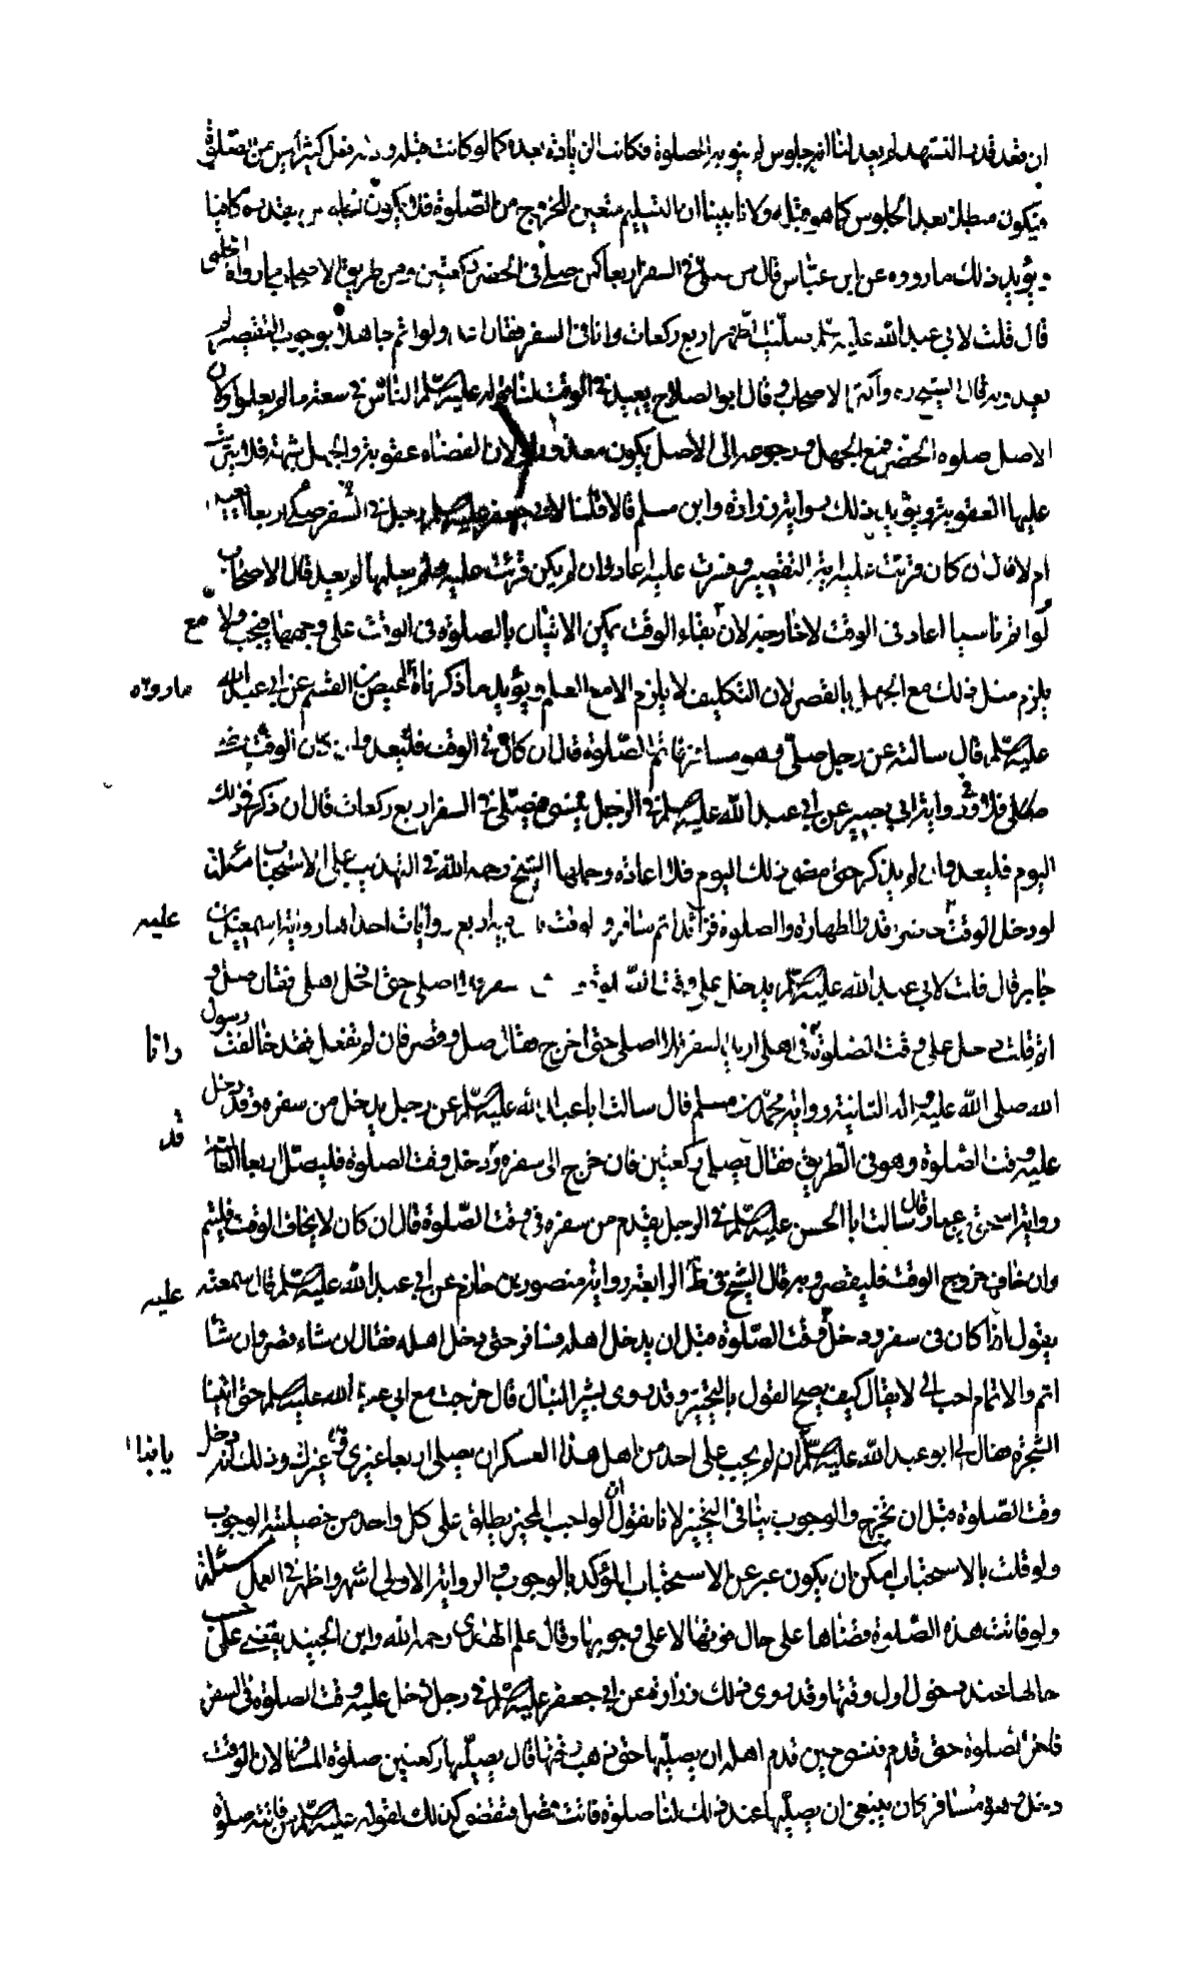 ان قعد قدر التشهد لم يعد لنا انه جلوس لم ينو به الصلوة فكانت الزيادة بعده كما لو كانت قبله ولانه فعل كثير ليس من الصلوة
فيكون مبطلا بعد الجلوس كما هو قبله ولانا بينا ان التسليم متعين للخروج من الصلوة فلا يكون
ويؤيد ذلك ما رووه عن ابن عباس قال من صلى في السفر اربعا كمن صلى في الحضر ركعتين ومن طريق الاصحاب ما رواه الحلبي
قال قلت لابي عبد الله عليه السلم صليت الظهر اربع ركعات وانا في السفر فقال اعد ولو اتم جاهلا بوجوب التقصير لم
يعد وبه قال الشيخ ره واكثر الاصحاب وقال ابو الصلاح يعيد في الوقت لنا قوله عليه السلم الناس في سعة ما لم يعلموا ولان
الاصل صلوة الحضر فمع الجهل ورجوعه الى الاصل يكون معذورا ولان القضاء عقوبة والجهل شبهة فلا يترتب
عليها العقوبة ويؤيد ذلك رواية زرارة وابن مسلم قالا قلنا لابي جعفر عليه السلم رجل في السفر صلى اربعا ايعيد
ام لا قال ان كان قرئت عليه اية التقصير وفسرت عليه اعاد وان لم يكن قرئت عليه ولم يعلمها لم يعد قال الاصحاب
لو اتم ناسيا اعاد في الوقت لا خارجه لان بقاء الوقت يمكن الاتيان بالصلوة في الوقت على وجهها فيجب ولا مع
يلزم مثل ذلك مع الجهل بالقصر لان التكليف لا يلزم الا مع العلم ويؤيد ما ذكرناه العيص بن القسم عن ابي عبد الله ما رواه
عليه السلم قال سالته عن رجل صلى وهو مسافر فاتم الصلوة قال ان كان في الوقت فليعد وان كان الوقت قد
مضى فلا وفي رواية ابي بصير عن ابي عبد الله عليه السلم في الرجل ينسى فيصلى في السفر اربع ركعات قال ان ذكر في ذلك
اليوم فليعد وان لم يذكر حتى مضى ذلك اليوم فلا اعادة وحملها الشيخ رحمه الله في التهذيب على الاستحباب مسئلة
لو دخل الوقت حاضرا قدر الطهارة والصلوة ثم سافر والوقت باق فيه اربع روايات احداها رواية اسمعيل بن عليه
جابر قال قلت لابي عبد الله عليه السلم يدخل علي وقت الصلوة وانا في سفر فلا اصلي حتى ادخل اهلي فقال صل و
اتم قلت دخل علي وقت الصلوة في اهلي اريد السفر فلا اصلى حتى اخرج فقال صل وقصر فان لم تفعل فقد خالفت رسول وانا
الله صلى الله عليه واله الثانية رواية محمد بن مسلم قال سالت ابا عبد الله عليه السلم عن رجل يدخل من سفره وقد دخل
عليه وقت الصلوة وهو في الطريق فقال يصلي ركعتين فان خرج الى سفره ودخل وقت الصلوة فليصل اربعا الثالثة قد
رواية اسحق بن عمار قال سالت ابا الحسن عليه السلم في الرجل يقدم من سفره في وقت الصلوة قال ان كان لا يخاف الوقت فليتم
وان خاف خروج الوقت فليقصر وبه قال الشيخ في ط الرابعة رواية منصور بن حازم عن ابي عبد الله عليه السلم قال سمعته عليه
يقول اذا كان في سفر ودخل وقت الصلوة قبل ان يدخل اهله فسافر حتى دخل اهله فقال ان شاء قصر وان شاء
اتم والاتمام احب الى لا يقال كيف يصح القول بالتخيير وقد روى بشير النبال قال خرجت مع ابي عبد الله عليه السلم حتى اتينا
الشجرة فقال لى ابو عبد الله عليه السلم انه لم يجب على احد من اهل هذا العسكر ان يصلي اربعا غيري وغيرك وذلك انه دخل يا نبال
وقت الصلوة قبل ان نخرج والوجوب ينافي التخيير لانا نقول ان الواجب المخير يطلق على كل واحد من خصلتيه الوجوب
ولو قلت بالاستحباب امكن ان يكون عبر عن الاستحباب المؤكد بالوجوب والرواية الاولى اشهر واظهر في العمل مسئلة
ولو فاتت هذه الصلوة قضاها على حال فوتها لا على وجوبها وقال علم الهدى رحمه الله وابن الجنيد يقضى على حسب
حالها عند دخول اول وقتها وقد روى ذلك زرارة عن ابي جعفر عليه السلم في رجل دخل عليه وقت الصلوة في السفر
فاخر الصلوة حتى قدم فنسى حين قدم اهله ان يصليها حتى ذهب وقتها قال يصليها ركعتين صلوة المسافر لان الوقت
دخل وهو مسافر كان ينبغى ان يصليها عند ذلك لنا صلوة فاتت فتقضى كذلك لقوله عليه السلم من فاتته صلوة